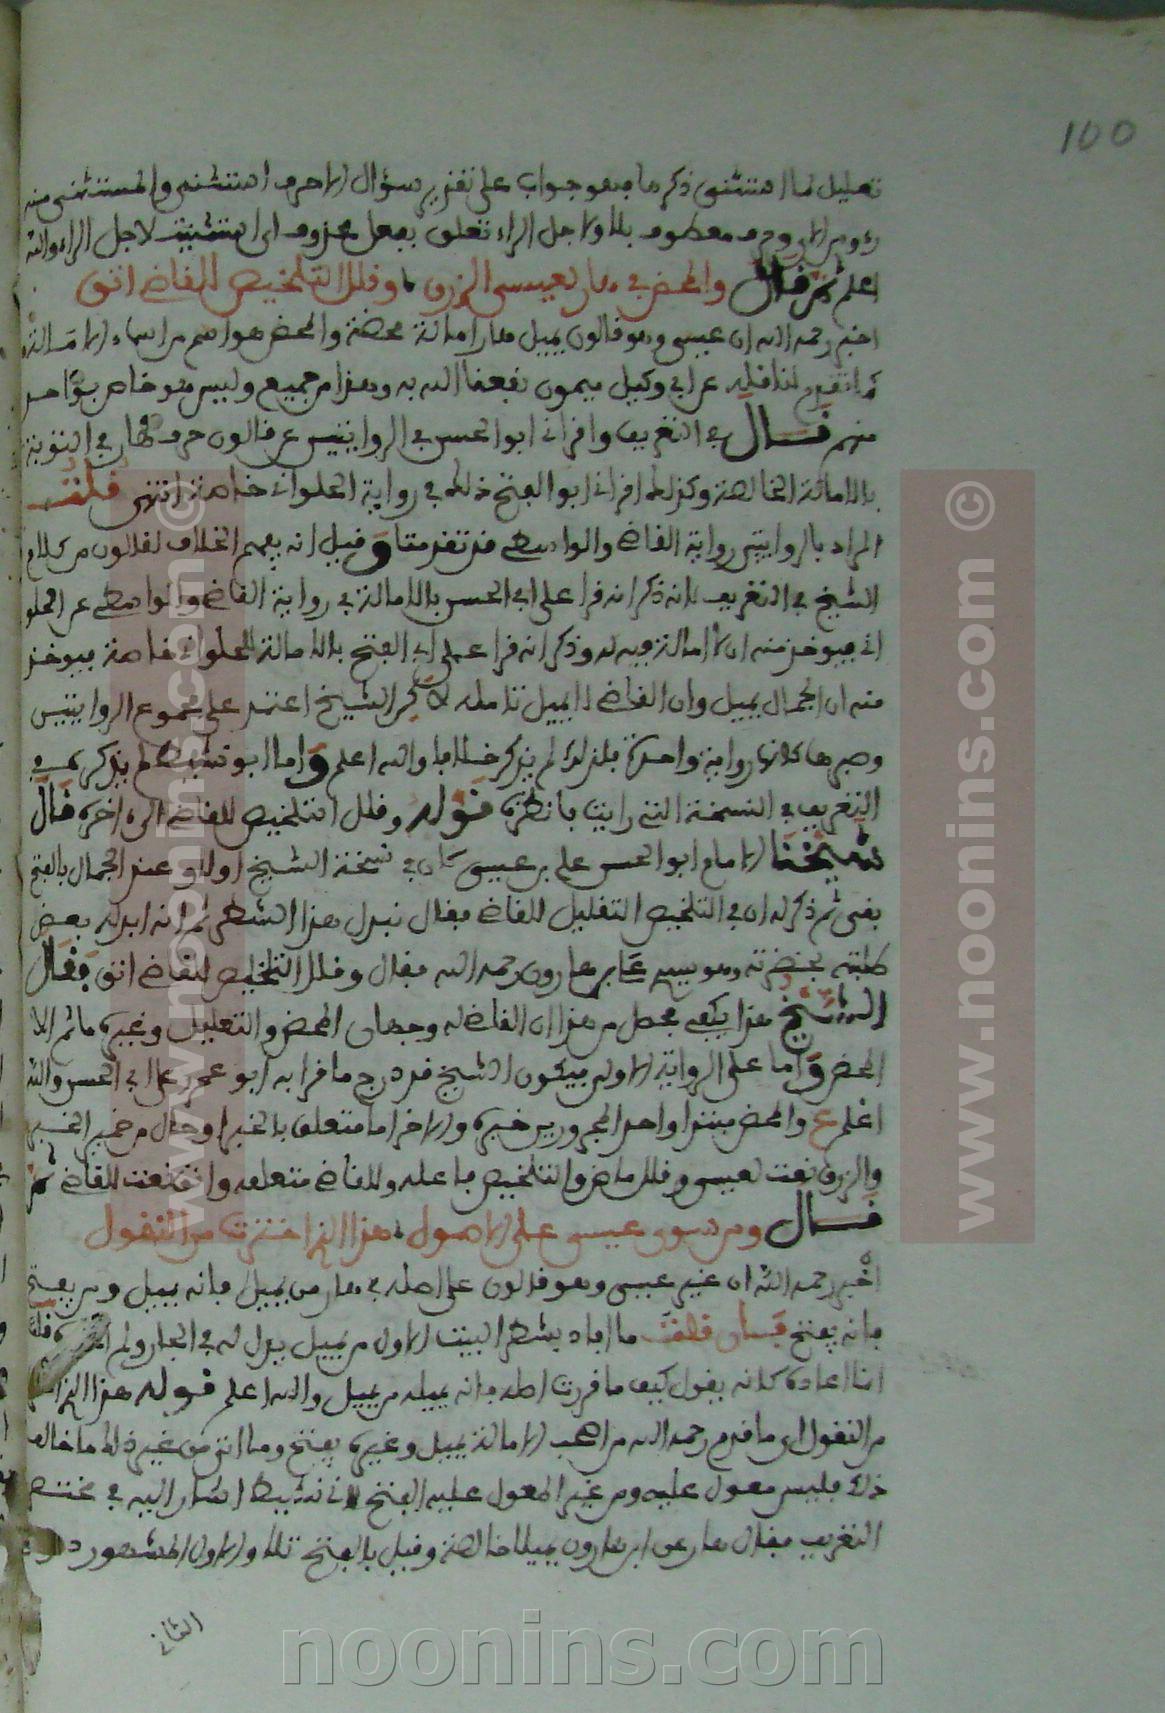 100
تعليل لما استثنى ذكره ما فهو جواب على تقدير سؤال الاحرف استثنى والمستثنى منه
معطوف بلا ولاجل الراء تعلق بفعل محذوف اي استثنيت لاجل الراء والله
اعلم ثم قال والمحض في هار لعيسى الزرق وقلل التلخيص للقاضي اتق
اخبر رحمه الله ان عيسى وهو قالون يميل هار امالة محضة والمحض هو اسم من اسماء الامالة
كما تقدم لنا نقله عن ابي وكيل ميمون نفعنا الله به وهذا من جميع وليس هو خاص بواحد
منهم قال في التعريف واقراني ابو الحسن في الروايتين عن قالون حرف هار في التوبة
بالامالة الخالصة وكذلك اقراني ابو الفتح ذلك في رواية الحلواني خاصة انتهى قلت
المراد بالروايتين رواية القاضي والواسطي قد تقدمتا وقيل انه يفهم الخلاف لقالون من كلام
الشيخ في التعريف لانه ذكر انه قرا على ابي الحسن بالامالة في رواية القاضي والواسطي عن الحلو
اني فيوخذ منه ان لا امالة فيه له وذكر انه قرا على ابي الفتح بالامالة للحلواني خاصة فيوخذ
منه ان الجمال يميل وان القاضي لا يميل تامله لاكن الشيخ اعتمد على مجموع الروايتين
وصيرها كانها رواية واحدة فلذلك لم يذكر خلافا والله اعلم واما ابو نشيط لم يذكره في
التعريف في النسخة التي رايت فانظره قوله وقلل التلخيص للقاضي الى اخره قال
شيخنا الامام ابو الحسن علي بن عيسى كان في نسخة الشيخ اولا وعند الجمال بالفتح
بقي ثم ذكر له ان في التلخيص التقليل للقاضي فقال نبدل هذا الشطر ثم انه ابدله بعض
طلبته بحضرته وهو رحمه الله فقال وقلل التلخيص للقاضي اتق فقال
الشيخ هذا يكفي فحصل من هذا ان القاضي له وجهان المحض والتقليل وغيره ما ثم الا
المحض واما على الرواية الاولى فيكون الشيخ قد درج ما قرا به ابو عمرو على ابي الحسن والله
اعلم ع والمحض مبتدا واحد المجرورين خبره والاخر اما متعلق بالخبر او حال من ضمير الخبر
والزرق نعت لعيسى وقلل ماض والتلخيص فاعله وللقاضي متعلقه واتق نعت للقاضي ثم
قال ومن سوى عيسى على الاصول هذا الذي اخترت من النقول
اخبر رحمه الله ان غير عيسى وهو قالون على اصله في هار من يميل فانه يميل ومن يفتح
فانه يفتح فان قلت ما افاد بشطر البيت الاول من يميل يدل له في الجار ولم قلت
انما اعاده كانه يقول كيف ما قررت اصله فانه يميله من يميل والله اعلم قوله هذا الذي
من النقول اي ما قدم رحمه الله من اصحب الامالة يميل وغيره يفتح وما اتى من غير ذلك ما خالف
ذلك فليس معول عليه ومن غير المعول عليه الفتح لابي نشيط اشار اليه في مختصر
التعريف فقال هار عن ابن هارون يميلا خالصة وقيل بالفتح تلا والاول المشهور
الثاني
www.noonins.com ©
www.noonins.com ©
noonins.com